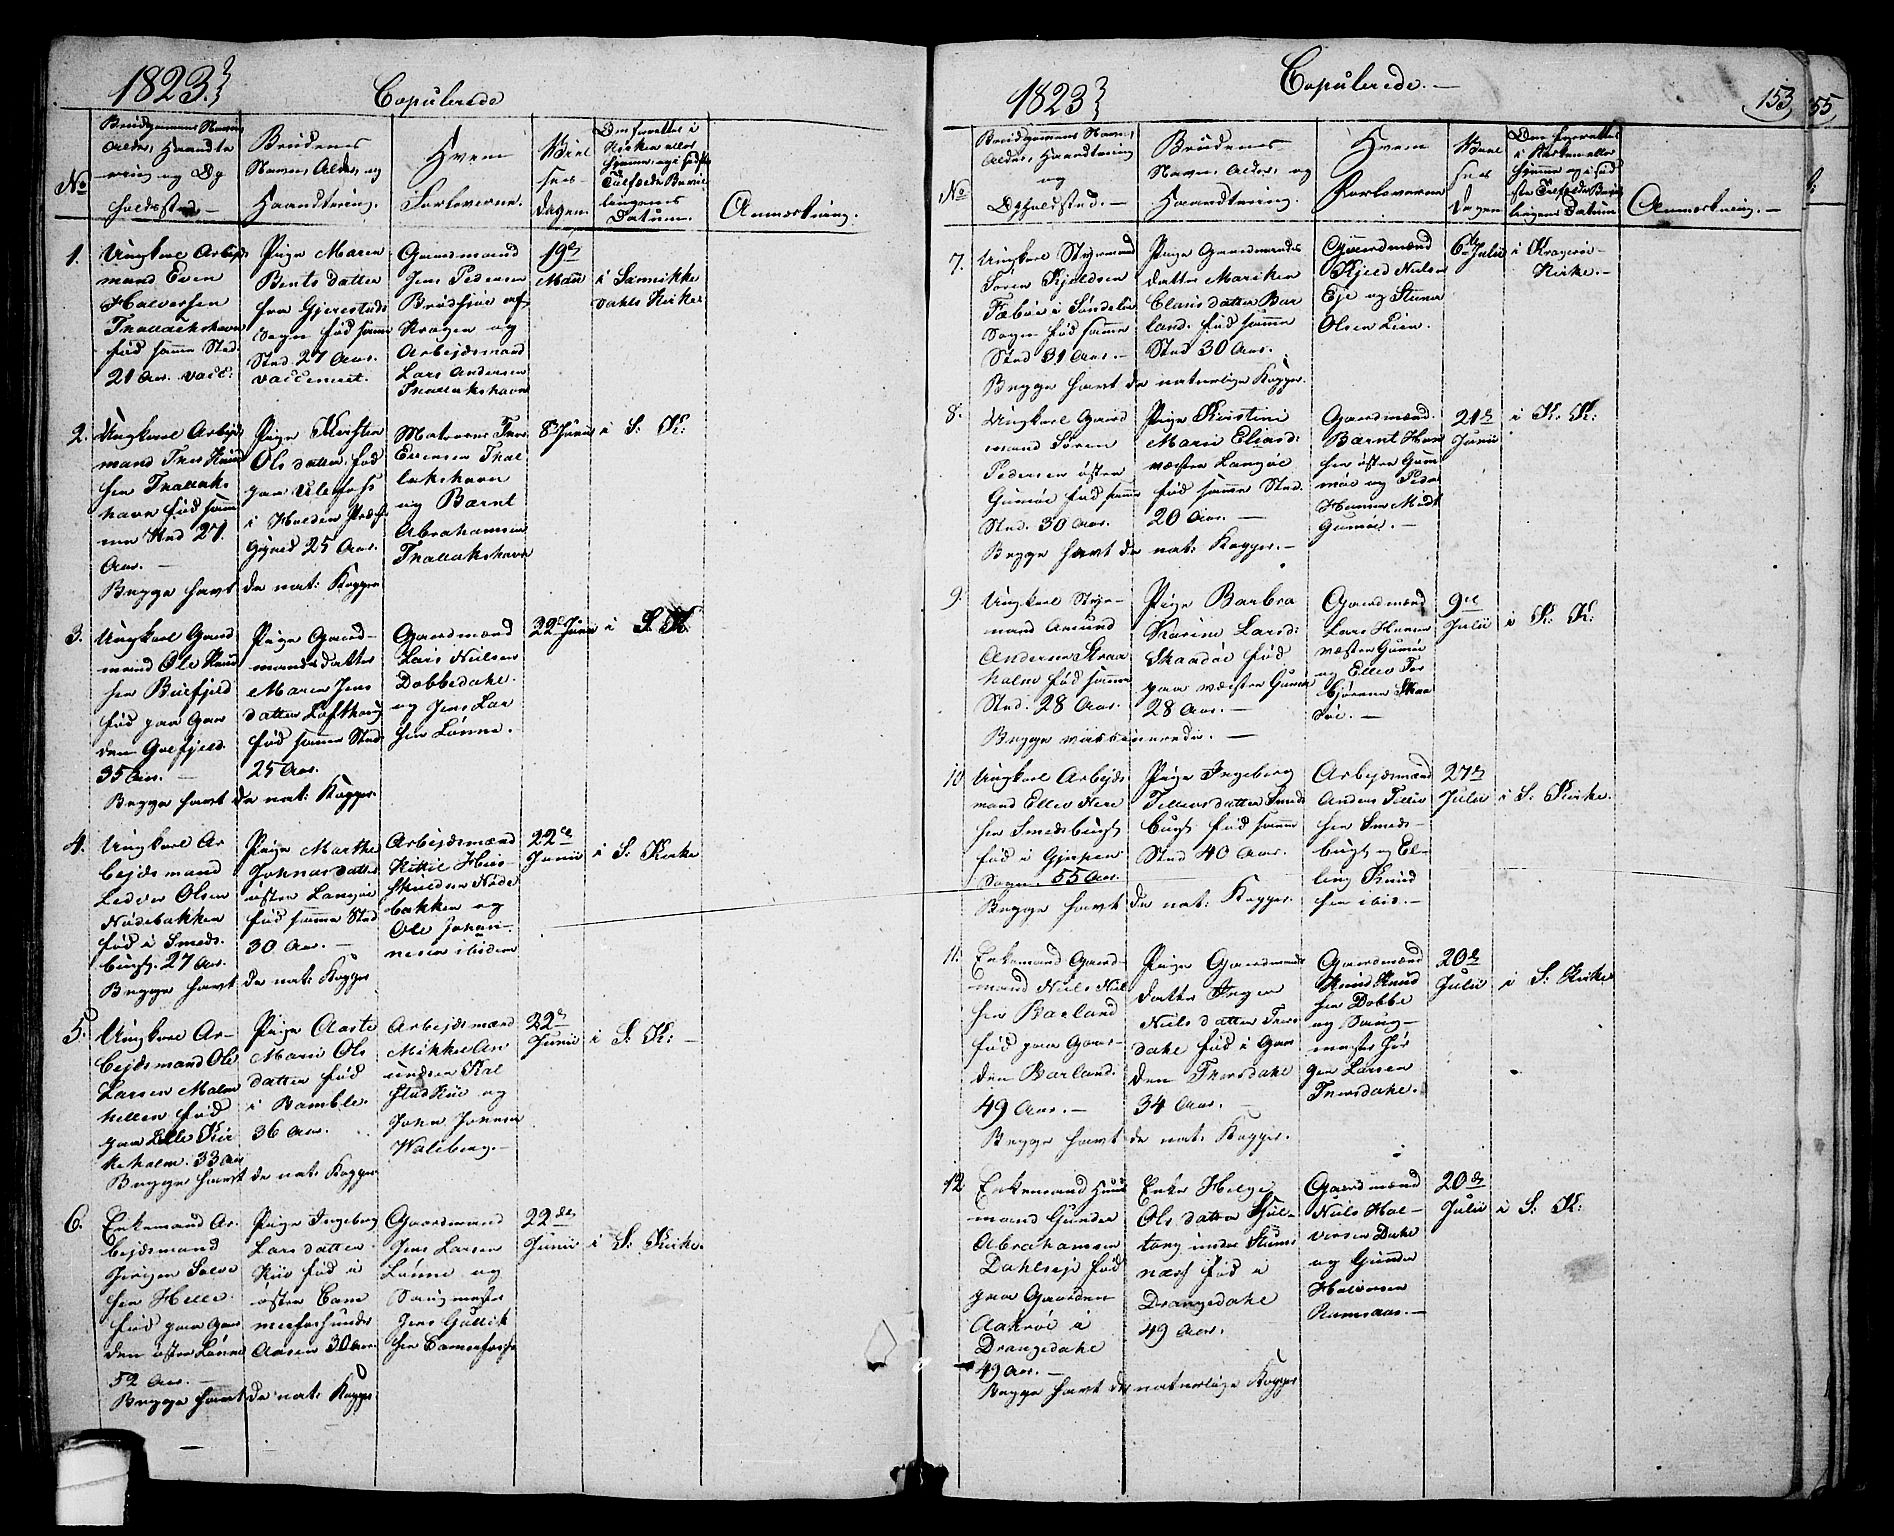 1823.
Copulerede
No
Brudgommens Navn,
Alder, Haandte
ring og Op
holdssted.
Brudens
Navn, Alder, og
Haandtering.
Hvem
Forloverne.
Viel
ses
dagen
Om forrettet i
Kirken eller
hjemme, og i sidste
Tilfælde Bevil
lingens
Datum.
Anmærkning.
1.
Ungkarl Arbeids
mand Even
Halvorsen
Thallakshavn
fød samme Sted
21 Aar. vacc:
Pige Maren
Bents datter
fra Gjerestads
Sogn fød samme
Sted 27 Aar.
vaccineret.
Gaardmand
Jens Pedersen
af
Kragerø og
Arbejdsmand
Lars Andersen
Thallakshavn
19de
Maii
i Sannikke
dahls Kirke
2.
Ungkarl Arbejds
mand Thor Knud
sen Thallaks
havn fød sam
me Sted 27
Aar.
Begge havt de nat: Kopper
Pige Kirsten
Ols datter fød
paa Ulefoss
i Holden Præste
gjeld 25 Aar.
Matroserne Thor
Evensen Thal
lakshavn
og Bærnt
Abrahamsen
Thallakshavn
8de Junii
i S: K:
3.
Ungkarl Gaard
mand Ole Knud
sen Buefjeld
fød paa Gaar
den Goefjeld
35 Aar.
Begge havt de nat: Kopper
Pige Gaard-
mandsdatter
Maren Jens
datter Lofthoug
fød samme Sted
25 Aar.
Gaardmænd
Lars Nielsen
Dobbedahl
og Jens Lar
sen Lønne.
22de Junii
i S. K:
4.
Ungkarl Ar
bejdsmand
Ledvor Olsen
Nødebakken
fød i Smeds
bugt. 27 Aar.
Begge havt de nat: Kopper
Pige Marthe
Johnas datter
østre Langøe
fød samme Sted
30 Aar.
Arbejdsmænd
Kittil Hies
Nøde
bakken og
Ole Johan-
nesen ibidem
22de
Junii
i S: Kirke
5.
Ungkarl Ar-
bejdsmand Ole
Larsen Malm
hellen fød
paa Lille Kir
keholm. 33 Aar
Begge havt de nat: Kopper
Pige Aaste
Marie Ols
datter fød
i Bamble.
36 Aar.
Arbejdsmænd
Mikkel An
undsen Kal
stadkiie og
John Johnsen
Waleberg.
22de
Junii
i S: K: -
6.
Enkemand Ar
bejdsmand
Jørgen Solve
sen Helle.
fød paa Gaar
den østre Lønne
52 Aar.
Begge havt de nat: Kopper
Pige Ingeborg
Lars datter
Kiie fød i
østre Cam
merfoshunder
Aasen 30 Aar
Gaardmænd
Jens Larsen
Lønne og
Saugmester
Jens Gullik
sen Camerfosse
22des
Junii
i S: Kirke.
1823
Copulerede.
153
55
No
Brudgommens Navn,
Alder, Haandtering
og
Opholdsted.
Brudens
Navn, Alder, og
Haandtering.
Hvem
Forloverne
Viel
ses
Dagen
Om forrettet
i Kirken eller
hjemme og i sid
ste Tilfælde Bevil
lingens Datum
Anmærkning.
7.
Ungkarl Styrmand
Søren Kjeldsen
Fæbøe i Søndeløv
Sogn fød samme
Sted 31 Aar.
Begge havt de naturlige Kopper.
Pige Gaardmands
datter Mariken
Claus datter Bar
land. fød samme
Sted 30 Aar.
Gaardmænd
Kjeld Nielsen
Eje og Steener
Olsen Lien.
6te Julii
i Kragerøe
Kirke.
8.
Ungkarl Gaard
mand Søren
Pedersen østre
Gumøe fød samme
Sted. 30 Aar.
Begge havt de nat: Kopper.
Pige Kirstine
Marie Eliasd:
vestre Langøe
fød samme Sted.
20 Aar.
Gaardmænd
Bærnt Han
sen østre Gum
møe og Peder
Hansen Midt
Gumøe.
21de
Junii
i K. K:
9.
Ungkarl Styr-
mand Amund
Andersen Straa
holm fød samme
Sted. 28 Aar.
Begge vaksinerede.
Pige Barbra
Karine Larsd:
Skaadøe fød
paa vestre Gumøe
28 Aar.
Gaardmænd
Lars Hansen
vestre Gumøe
og Ellev Tor
bjørnsen Skaa
døe.
9de
Julii
i K: K:
10
Ungkarl Arbejds
mand Ellev Niri
sen Smedsbugt
fød i Gjerpen
Sogn. 55 Aar.
Begge havt de nat: Kopper.
Pige Ingeborg
Tellevsdatter Smeds
bugt fød samme
Sted 40 Aar.
Arbejdsmænd
Anders Tellev
sen Smeds-
bugt og El-
ling Knud
sen ibid.
27de
Julii
i S: Kirke.
11.
Enkemand Gaard-
mand Niels Niel
sen Barland
fød paa Gaar-
den Barland.
49 Aar.
Begge havt de nat: Kopper.
Pige Gaardmands
datter Inger
Niels datter Thors
dahl fød i Gaar
den Thorsdahl
34 Aar.
Gaardmænd
Knud Knud
sen Dobbe
og Saug-
mester Jør
gen Larsen
Thorsdahl.
20de
Julii
i S: Kirke
12
Enkemand Huus
mand Gunder
Abrahamsen
Dahlseje fød
paa Gaarden
Aakrøe i
Drangedahl
49 Aar.
Begge havt de naturlige Kopper
Enke Helge
Ols datter Sjul-
tang under Stums
næs fød i
Drangedahl
49 Aar.
Gaardmænd
Niels Hal-
versen Dahl
og Gunder
Halversen
Ramsaas.
20de
Julii
i S: K: